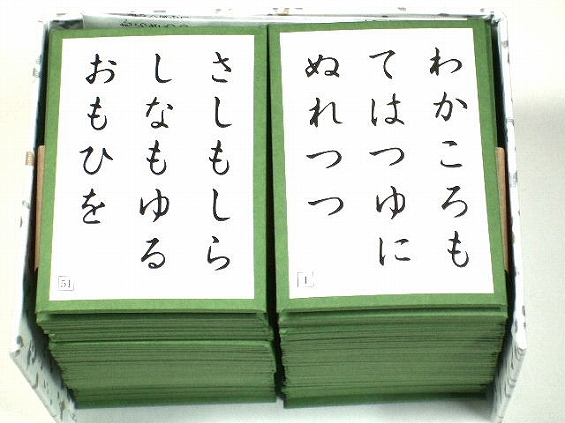 わかころも
てはつゆに
ぬれつつ
1
さしもしら
しなもゆる
おもひを
51